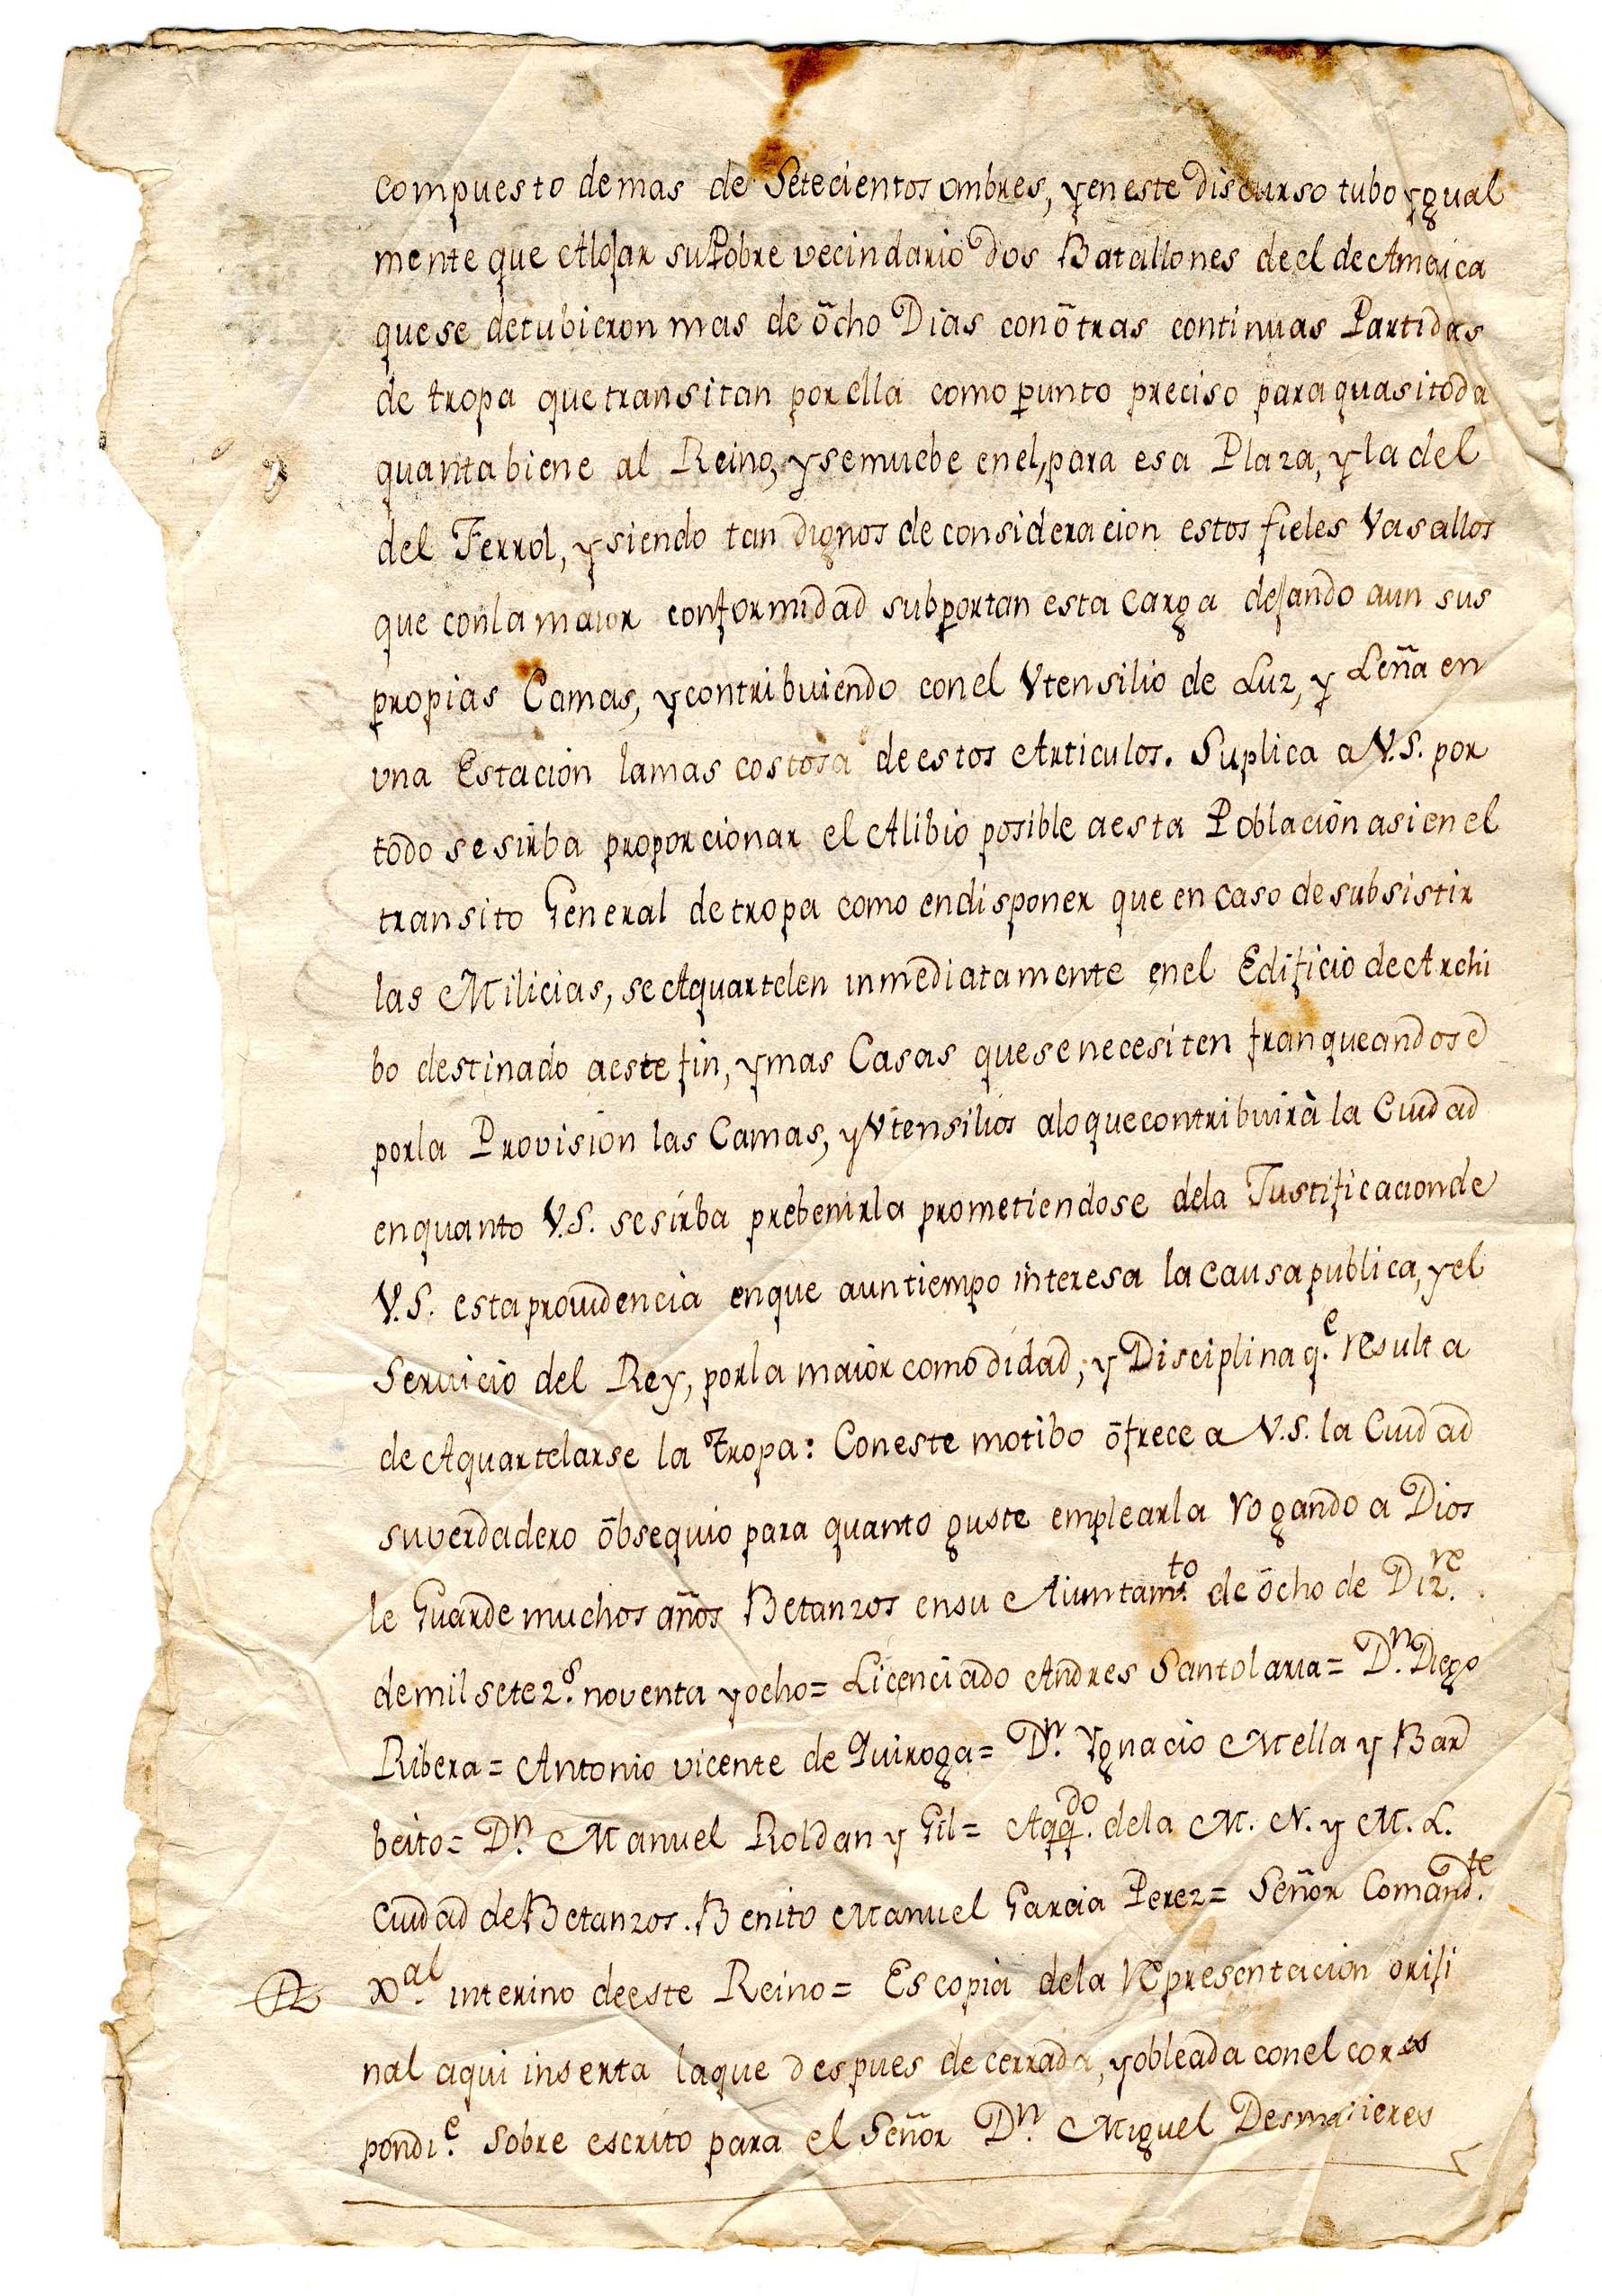 compuesto demas de Setecientos ombres, y eneste discurso tubo ygual
mente que Alojar suPobre vecindario dos Batallones de el de America
quese detubieron mas de õcho Dias con õtras continuas Partidas
de tropa que transitan por ella como punto preciso para quasi toda
quanta biene al Reino, y semuebe enel, para esa Plaza, y la del
del Ferrol, y siendo tan dignos de consideracion estos fieles Vasallos
que conla maior conformidad subportan esta carga dejando aun sus
propias Camas, y contribuiendo conel Vtensilio de Luz, y Leña en
vna Estacion lamas costosa de estos Articulos. Suplica a V.S. por
todo se sirba proporcionar el Alibio posible aesta Poblacion asi en el
transito General de tropa como endisponer que en caso de subsistir
las Milicias, se Aquartelen inmediatamente enel Edificio de Archi
bo destinado aeste fin, y mas Casas quese necesiten franqueandose
porla Provision las Camas, y Vtensilios alo que contribuirà la Ciudad
enquanto V.S. se sirba prebenirla prometiendose dela Justificacion de
V.S. esta providencia enque aun tiempo interesa la causa publica, y el
Servicio del Rey, porla maior comodidad, y Disciplina q.e resulta
de Aquartelarse la tropa: Coneste motibo õfrece a V.S. la Ciudad
su verdadero õbsequio para quanto guste emplearla rogando a Dios
le Guarde muchos años Betanzos ensu Aiuntam.to de õcho de Diz.re
demil setez.s noventa y ocho = Licenciado Andres Santolaria = D.n Diego
Ribera = Antonio vicente de Quiroga = D.n Ygnacio Mella y Bar
beito = D.n Manuel Roldan y Gil = Aqq.do dela M. N. y M. L.
Ciudad de Betanzos. Benito Manuel Garcia Perez = Señor Comand.te
Xal interino de este Reino = Es copia dela Representacion oriji
nal aqui inserta laque despues de cerrada, y obleada conel cores
pondi.e sobre escrito para el Señor D.n Miguel Desmaisieres